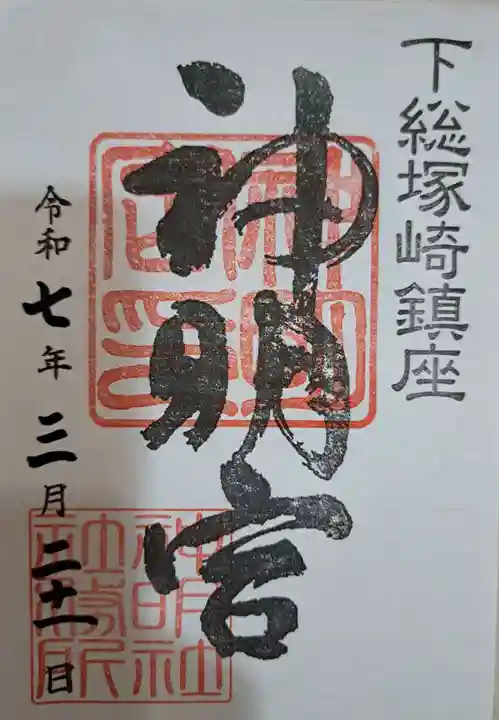 下総塚崎鎮座
神明宮
令和七年三月二十一日
神明社社務所